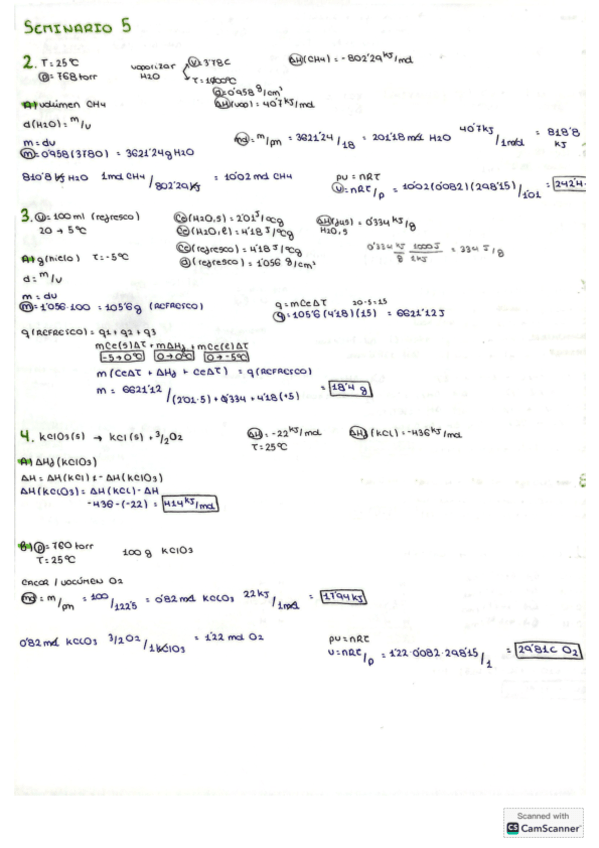 SEMINARIO 5
2. T=25ºC
P=768 torr
vaporizar H2O
V 3'78L
T=100ºC
d=0'958 g/cm³
ΔH(vap)=40'7 kJ/mol
ΔH(CH4)=-802'29 kJ/mol
A) volúmen CH4
d(H2O)=m/v
m=dv
m=0'958(3780) = 3621'24g H2O
mol=m/pm = 3621'24/18 = 201'18 mol H2O 40'7kJ/1mol = 818'8 kJ
810'8 kJ H2O 1mol CH4/802'29kJ = 10'02 mol CH4
PV=nRT
V=nRT/P = 10'02(0'082)(298'15)/1'01 = 242'4
3. V=100 ml (refresco)
20→5ºC
Ce(H2O,s)=2'01 J/ºCg
Ce(H2O,l)=4'18 J/ºCg
Ce(refresco)=4'18 J/ºCg
d(refresco)=1'056 g/cm³
ΔH(fus)=0'334 kJ/g
H2O,s
0'334 kJ/g 1000J/1kJ = 334 J/g
A) g(hielo) T=-5ºC
d=m/v
m=dv
m=1'056·100 = 105'6 g (REFRESCO)
q=mCeΔT 20-5=15
q=105'6(4'18)(15) = 6621'12J
q(REFRESCO)=q1+q2+q3
mCe(s)ΔT + mΔHf + mCe(l)ΔT
-5→0ºC 0→0ºC 0→-5ºC
m(CeΔT + ΔHf + CeΔT) = q(REFRESCO)
m = 6621'12/(2'01·5)+0'334+4'18(+5) = 18'4 g
4. KClO3(s) → KCl(s) + 3/2O2
ΔH=-22kJ/mol
T=25ºC
ΔHf(KCl)=-436kJ/mol
A) ΔHf(KClO3)
ΔH=ΔH(KCl)-ΔH(KClO3)
ΔH(KClO3)=ΔH(KCl)-ΔH
-436-(-22) = 414 kJ/mol
B) P=760 torr
T=25ºC
100 g KClO3
CALOR / VOLÚMEN O2
mol=m/pm = 100/122'5 = 0'82 mol KClO3 22kJ/1mol = 17'94kJ
0'82 mol KClO3 3/2O2/1KClO3 = 1'22 mol O2
PV=nRT
V=nRT/P = 1'22·0'082·298'15/1 = 29'81L O2
Scanned with
CS CamScanner